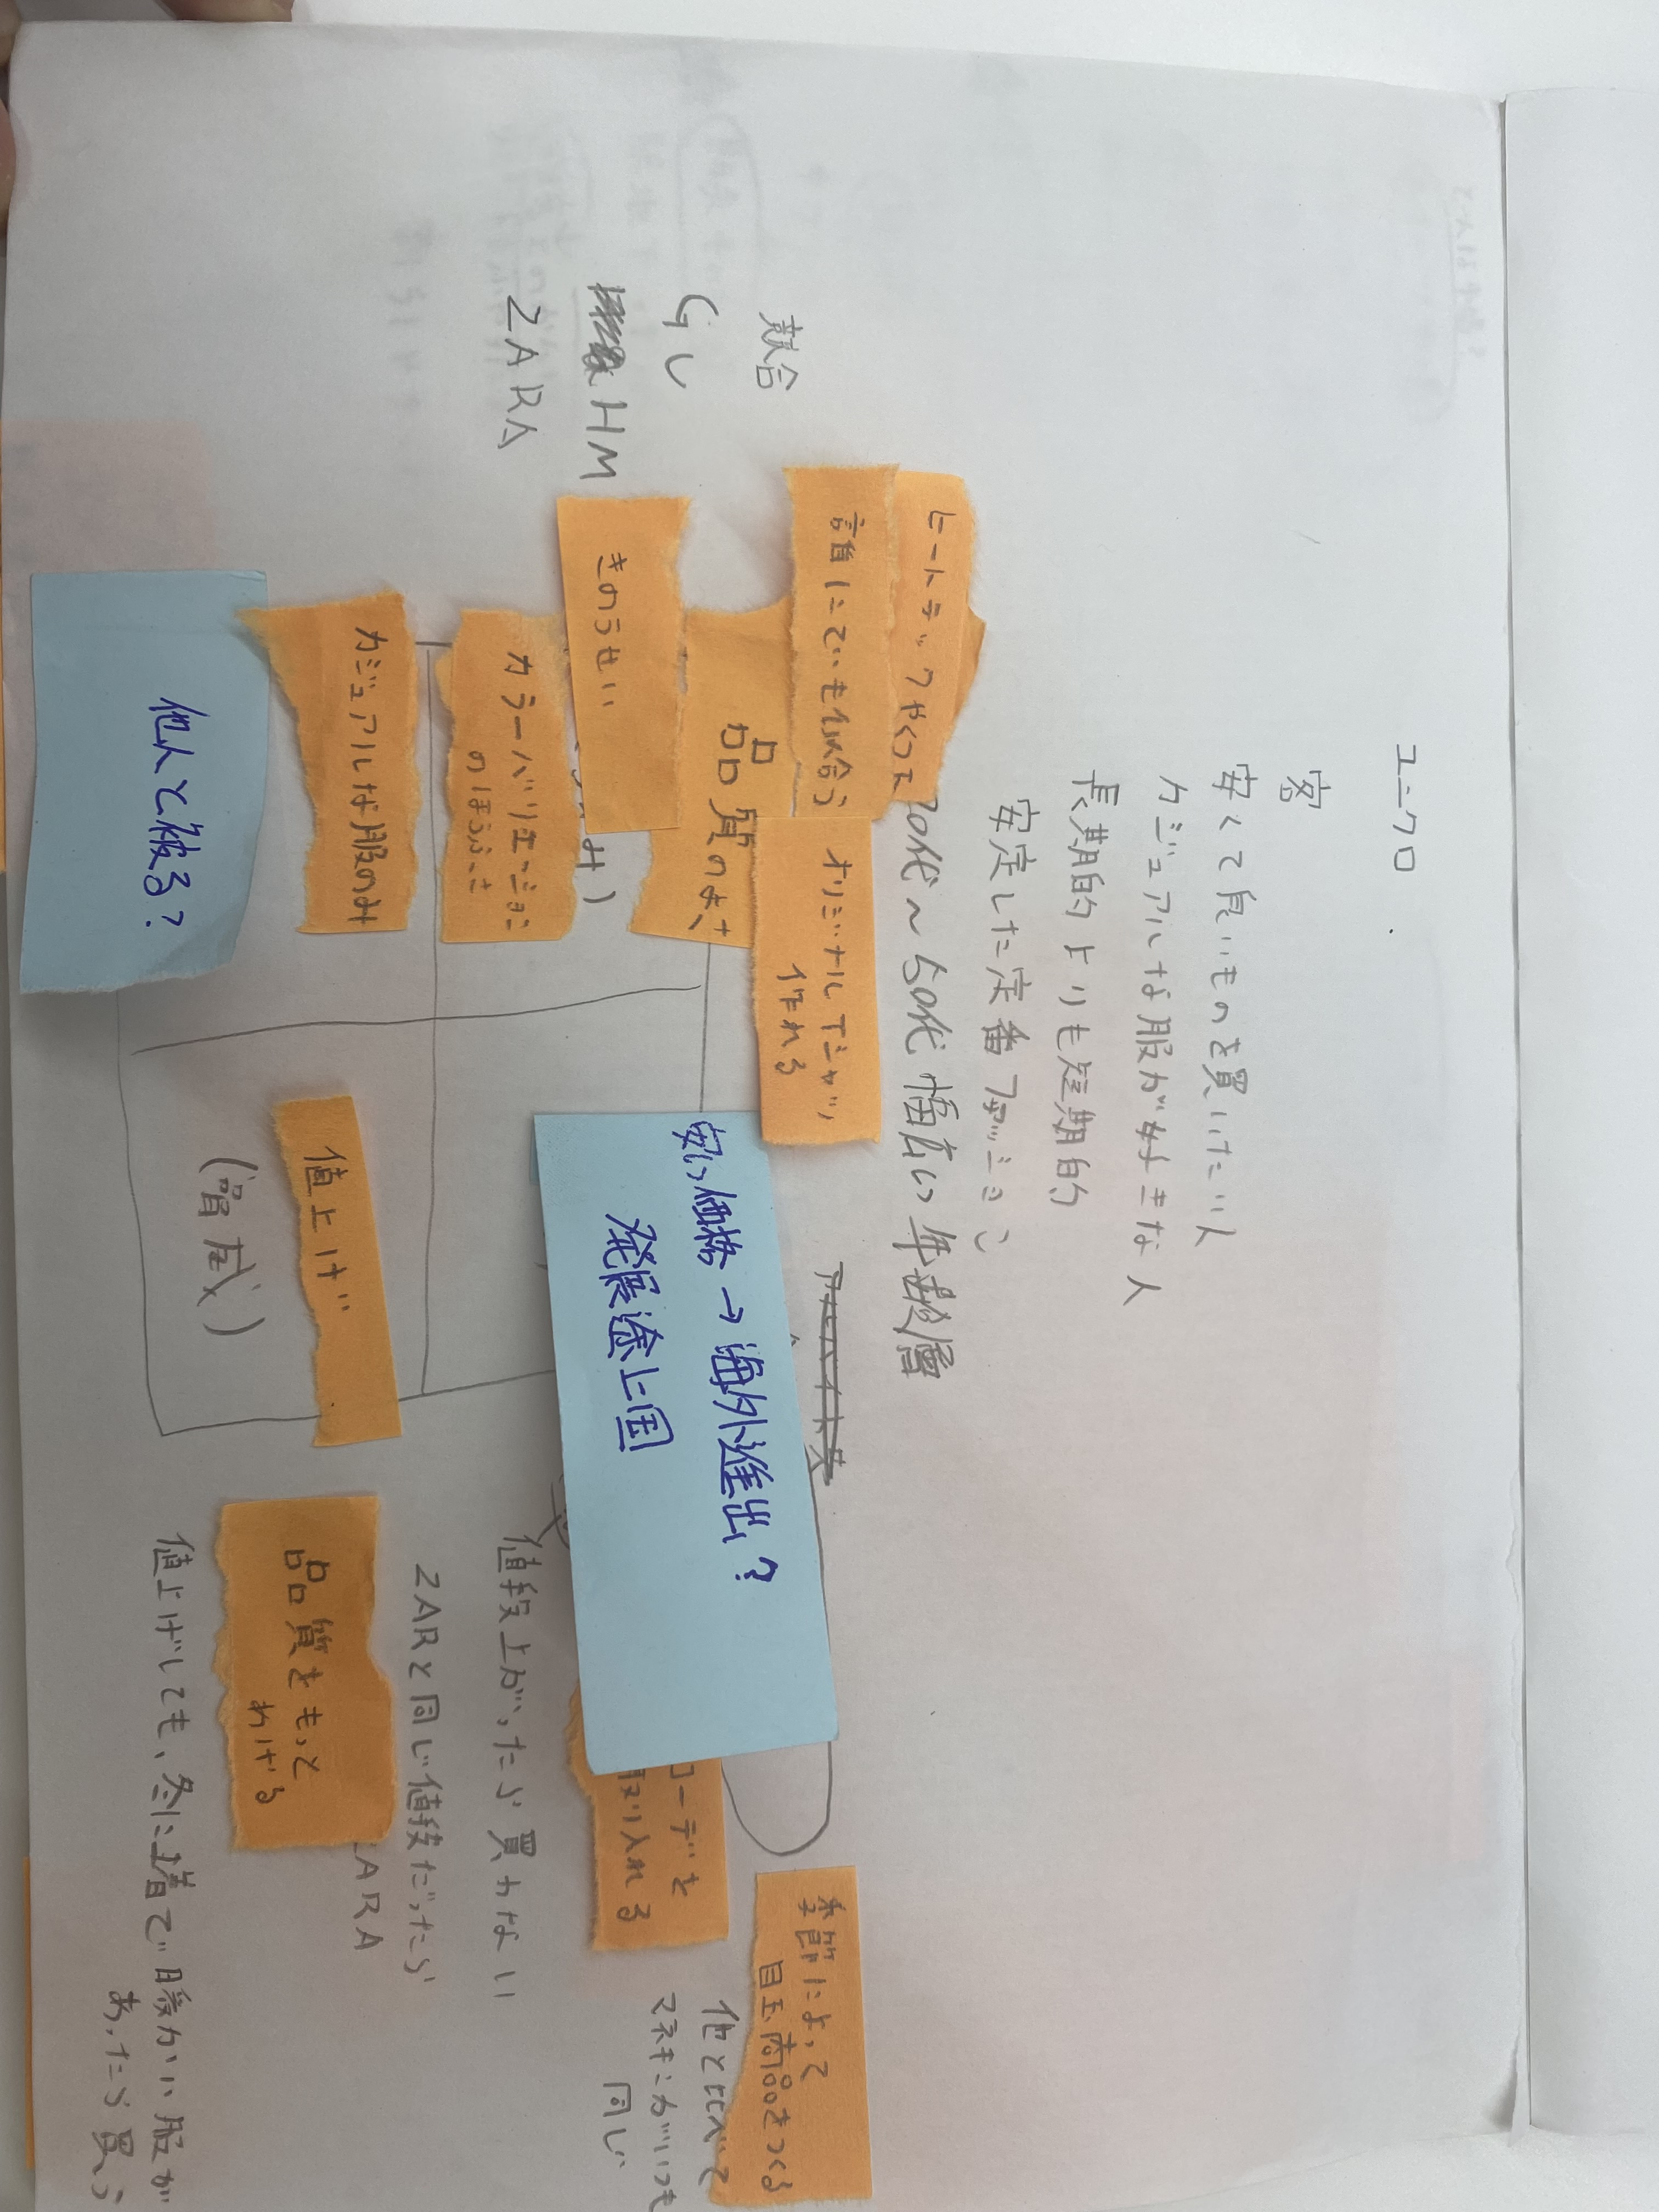 ユニクロ
客
安くて良いものを買いたい人
カジュアルな服が好きな人
長期的よりも短期的
安定した定番ファッション
20代～50代 幅広い年齢層
ヒートテックやくつ下
誰にでも似合う
オリジナルTシャツ
作れる
品質のよさ
きのうせい
み)
カラーバリエーション
のほうふさ
カジュアルな服のみ
他人と被る?
競合
GU
HM
ZARA
アルバイト
安い価格→海外進出?
発展途上国
値上げ
(脅威)
季節によって
目玉商品をつくる
他と比べて
マネキンがいつも
同じ
コーデを
取り入れる
値段上がったら買わない
ZARと同じ値段だったら
ZARA
品質をもっと
あげる
値上げしても、冬に1着で暖かい服が
あったら買う